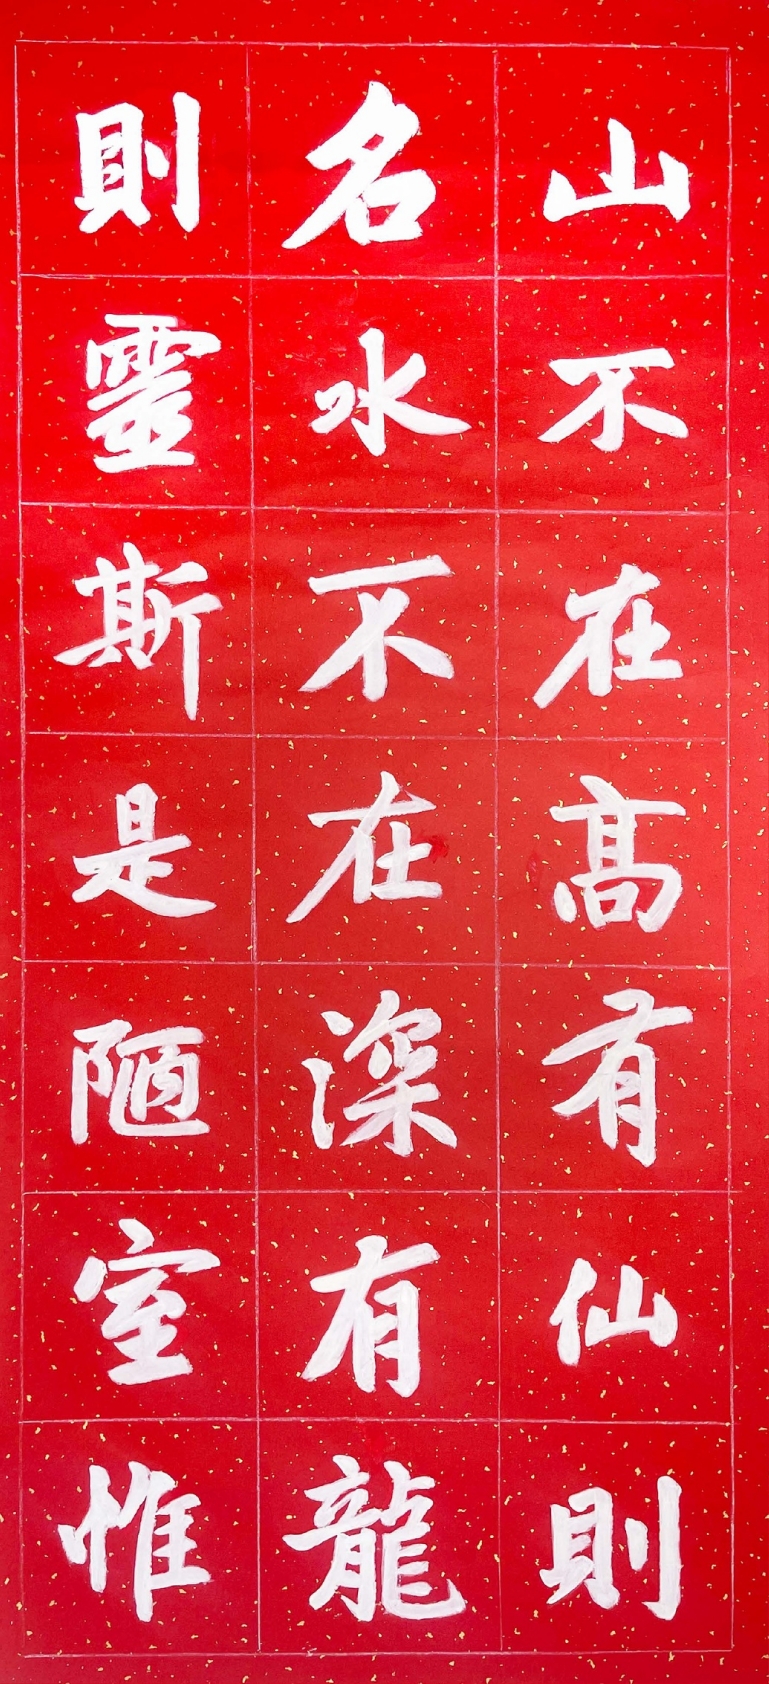 山不在高有仙則
名水不在深有龍
則靈斯是陋室惟